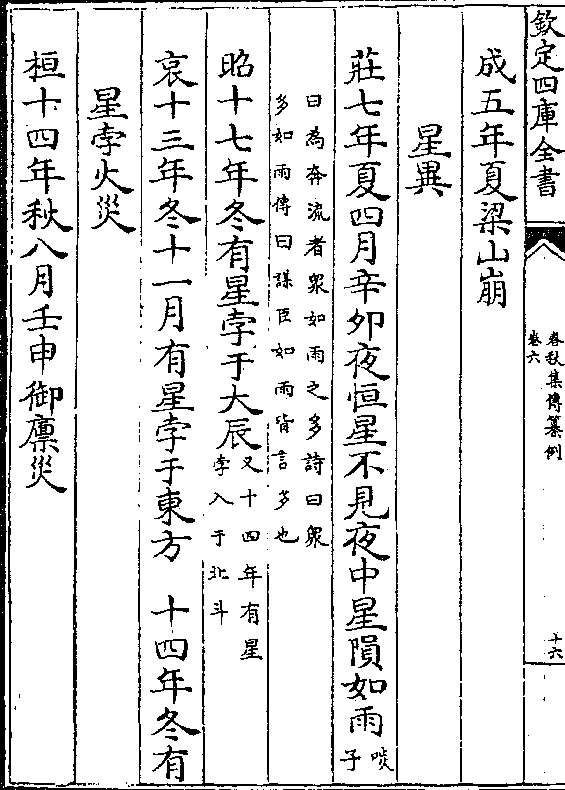 欽定四庫全書
春秋集傳纂例
卷六
十六
成五年夏梁山崩
星異
莊七年夏四月辛夘夜恒星不見夜中星隕如雨啖子
曰為奔流者衆如雨之多詩曰衆
多如雨傳曰謀臣如雨皆言多也
昭十七年冬有星孛于大辰又十四年有星孛入于北斗
哀十三年冬十一月有星孛于東方 十四年冬有
星孛火災
桓十四年秋八月壬申御廪災